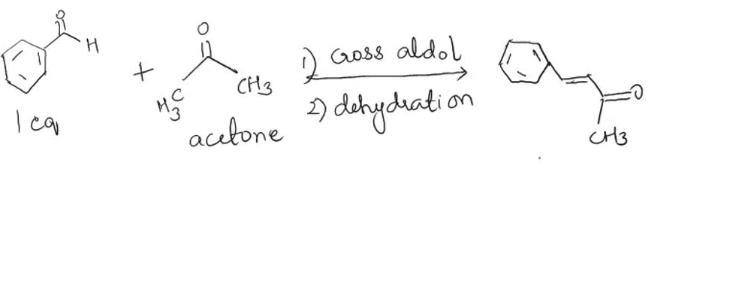 O
H
1 eq
+
O
H3C
CH3
acetone
1) cross aldol
2) dehydration
O
CH3